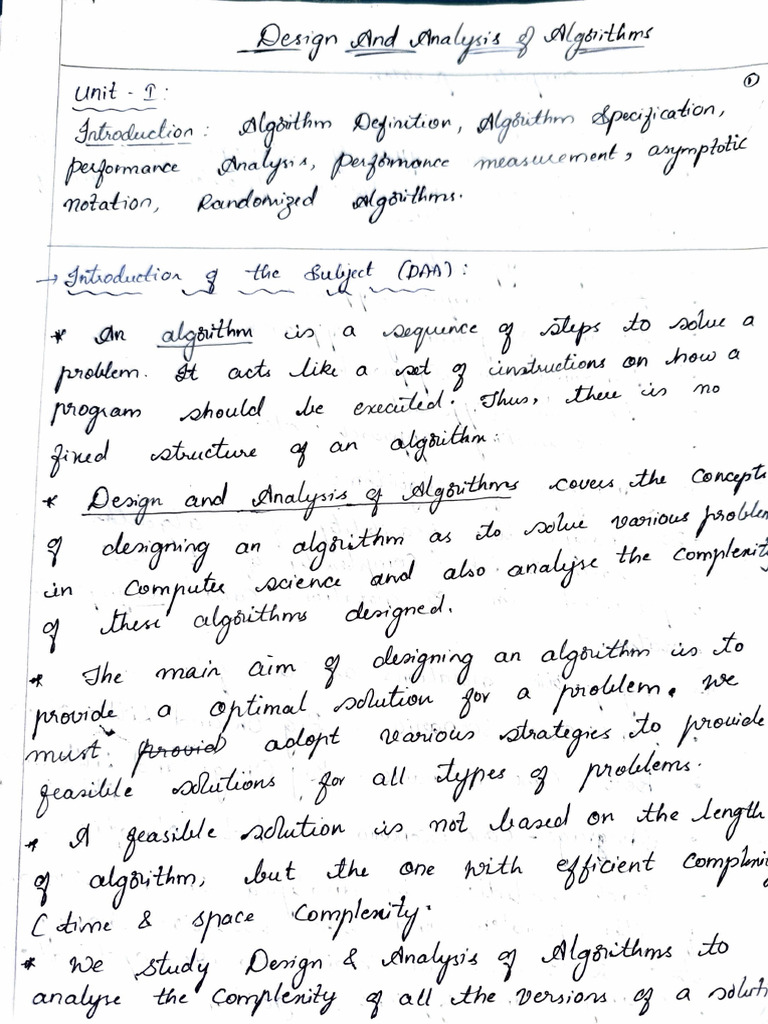 Design And Analysis of Algorithms
1
Unit - I:
Introduction: Algorithm Definition, Algorithm Specification,
performance Analysis, performance measurement, asymptotic
notation, Randomized Algorithms.
→ Introduction of the Subject (DAA):
* An algorithm is a sequence of steps to solve a
problem. It acts like a set of instructions on how a
program should be executed. Thus, there is no
fixed structure of an algorithm.
* Design and Analysis of Algorithms covers the concepts
of designing an algorithm as to solve various problem
in computer science and also analyse the complexity
of these algorithms designed.
* The main aim of designing an algorithm is to
provide a optimal solution for a problem. we
must provid adopt various strategies to provide
feasible solutions for all types of problems.
* A feasible solution is not based on the length
of algorithm, but the one with efficient complexi
(time & space complexity.
* We study Design & Analysis of Algorithms to
analyse the complexity of all the versions of a soluti